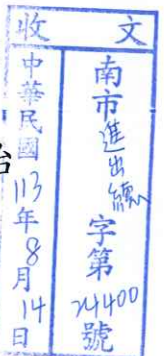 收文
南市進出字第24400號
中華民國113年8月14日